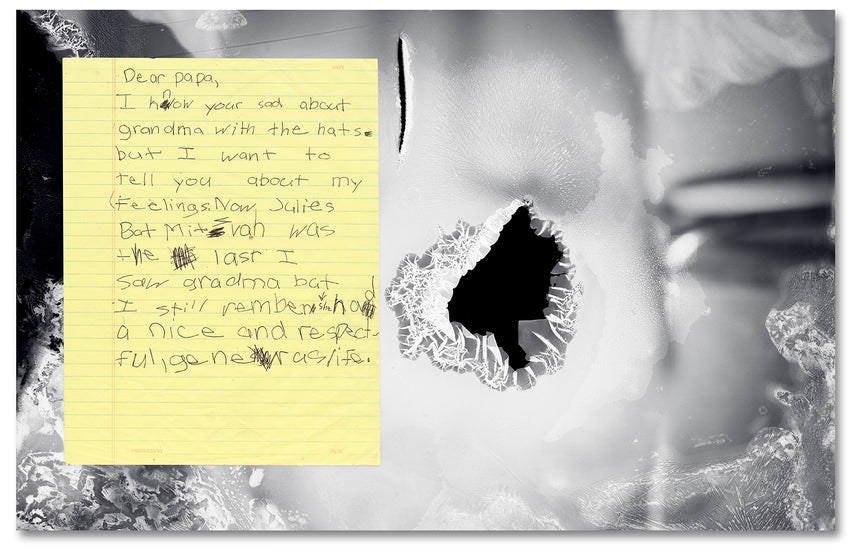 Dear papa,
I know your sad about
grandma with the hats.
but I want to
tell you about my
feelings. Now, Julies
Bat Mitzvah was
the last I
saw gradma but
I still rember she had
a nice and respect-
ful, generas life.